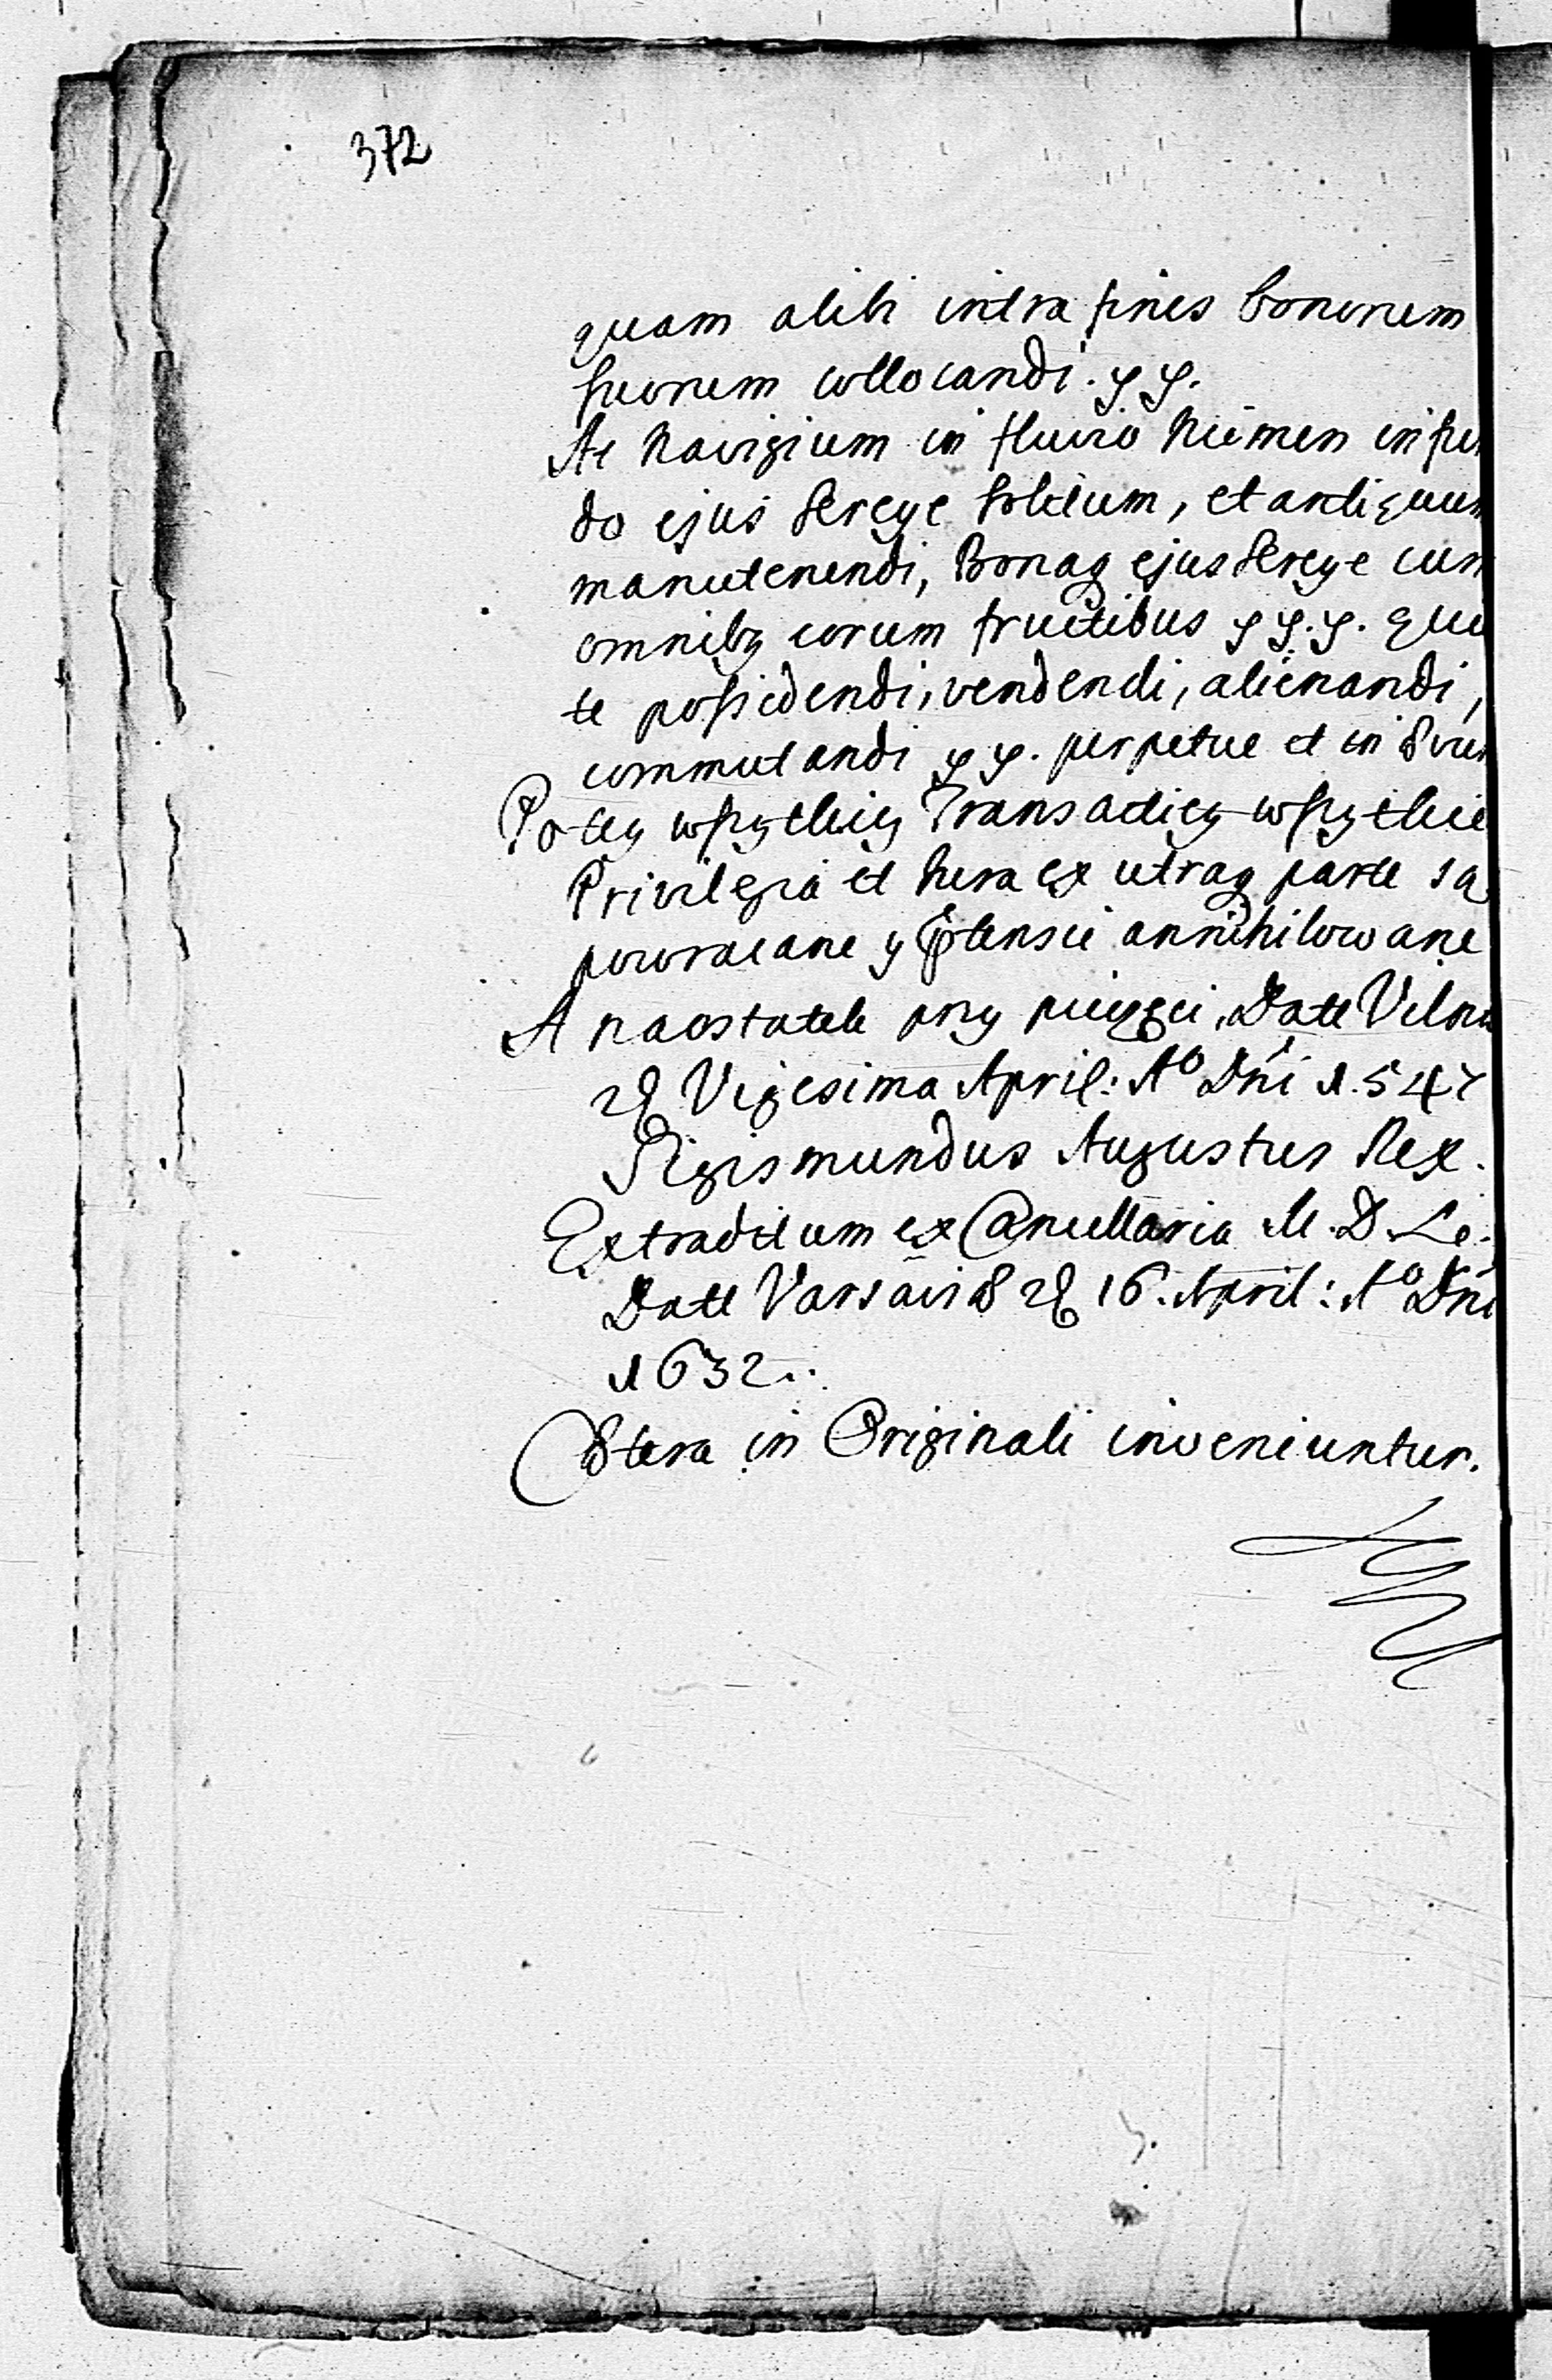 372
quam alibi intra fines bonorum
suorum collocandi. y y.
Ac Navigium in fluvio Niemen in fun
do ejus Sereye solitum, et antiquum
manutenendi, Bonaq ejus Sereye cum
omnibq eorum fructibus y y. y. que
te possidendi, vendendi, alienandi,
commutandi y y. perpetue et in Ævum
Po tey wszytkiey Transactiey wszytkie
Privilegia et Iura ex utraq parte są
powracane y ptensie annihilowane
A na ostatek przy pieczęci, Datt Vilnæ
Vigesima April: Aº Dni 1547
Sigismundus Augustus Rex.
Extraditum ex Cancellaria M. D. L.
Datt Varsaviæ 16. April: Aº Dni
1632.
Cætera in Originali inveniuntur.